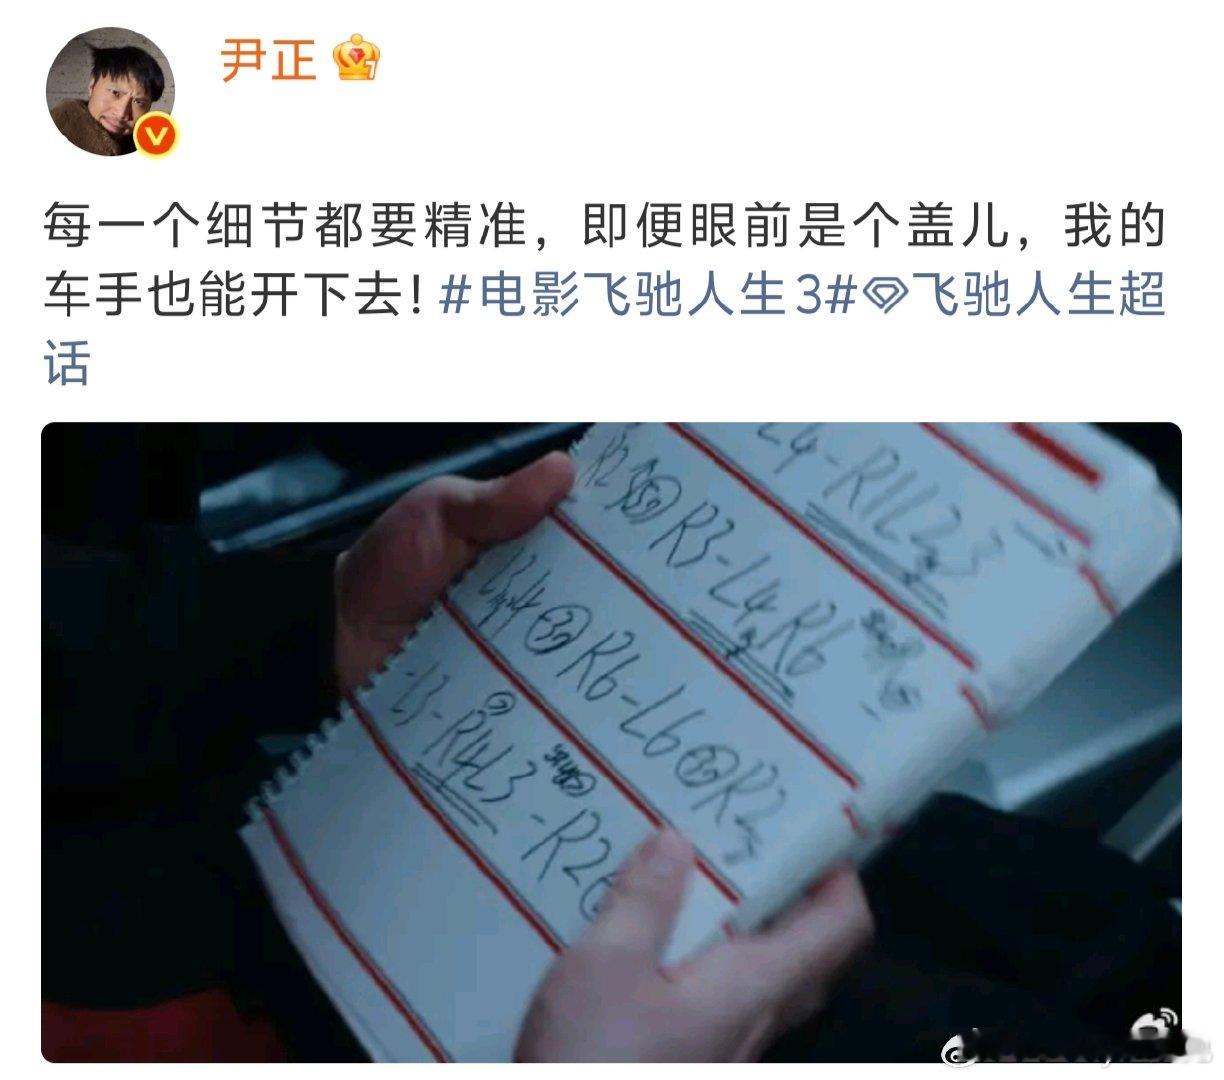 尹正
每一个细节都要精准，即便眼前是个盖儿，我的
车手也能开下去！#电影飞驰人生3#飞驰人生超
话
L4-R1L2
R3-L4R6
R6-L6 R2
-L3-R4L3-R2